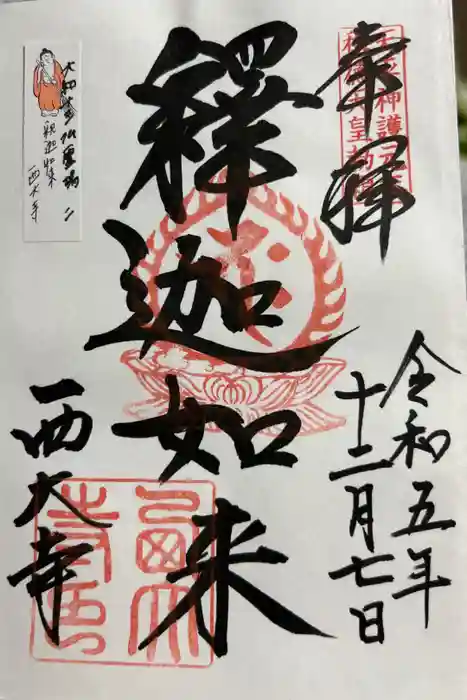 奉拝
天平神護元年
称徳天皇勅願
令和五年
十二月七日
釋迦如来
西大寺
大和十三仏霊場 二
釈迦如来
西大寺